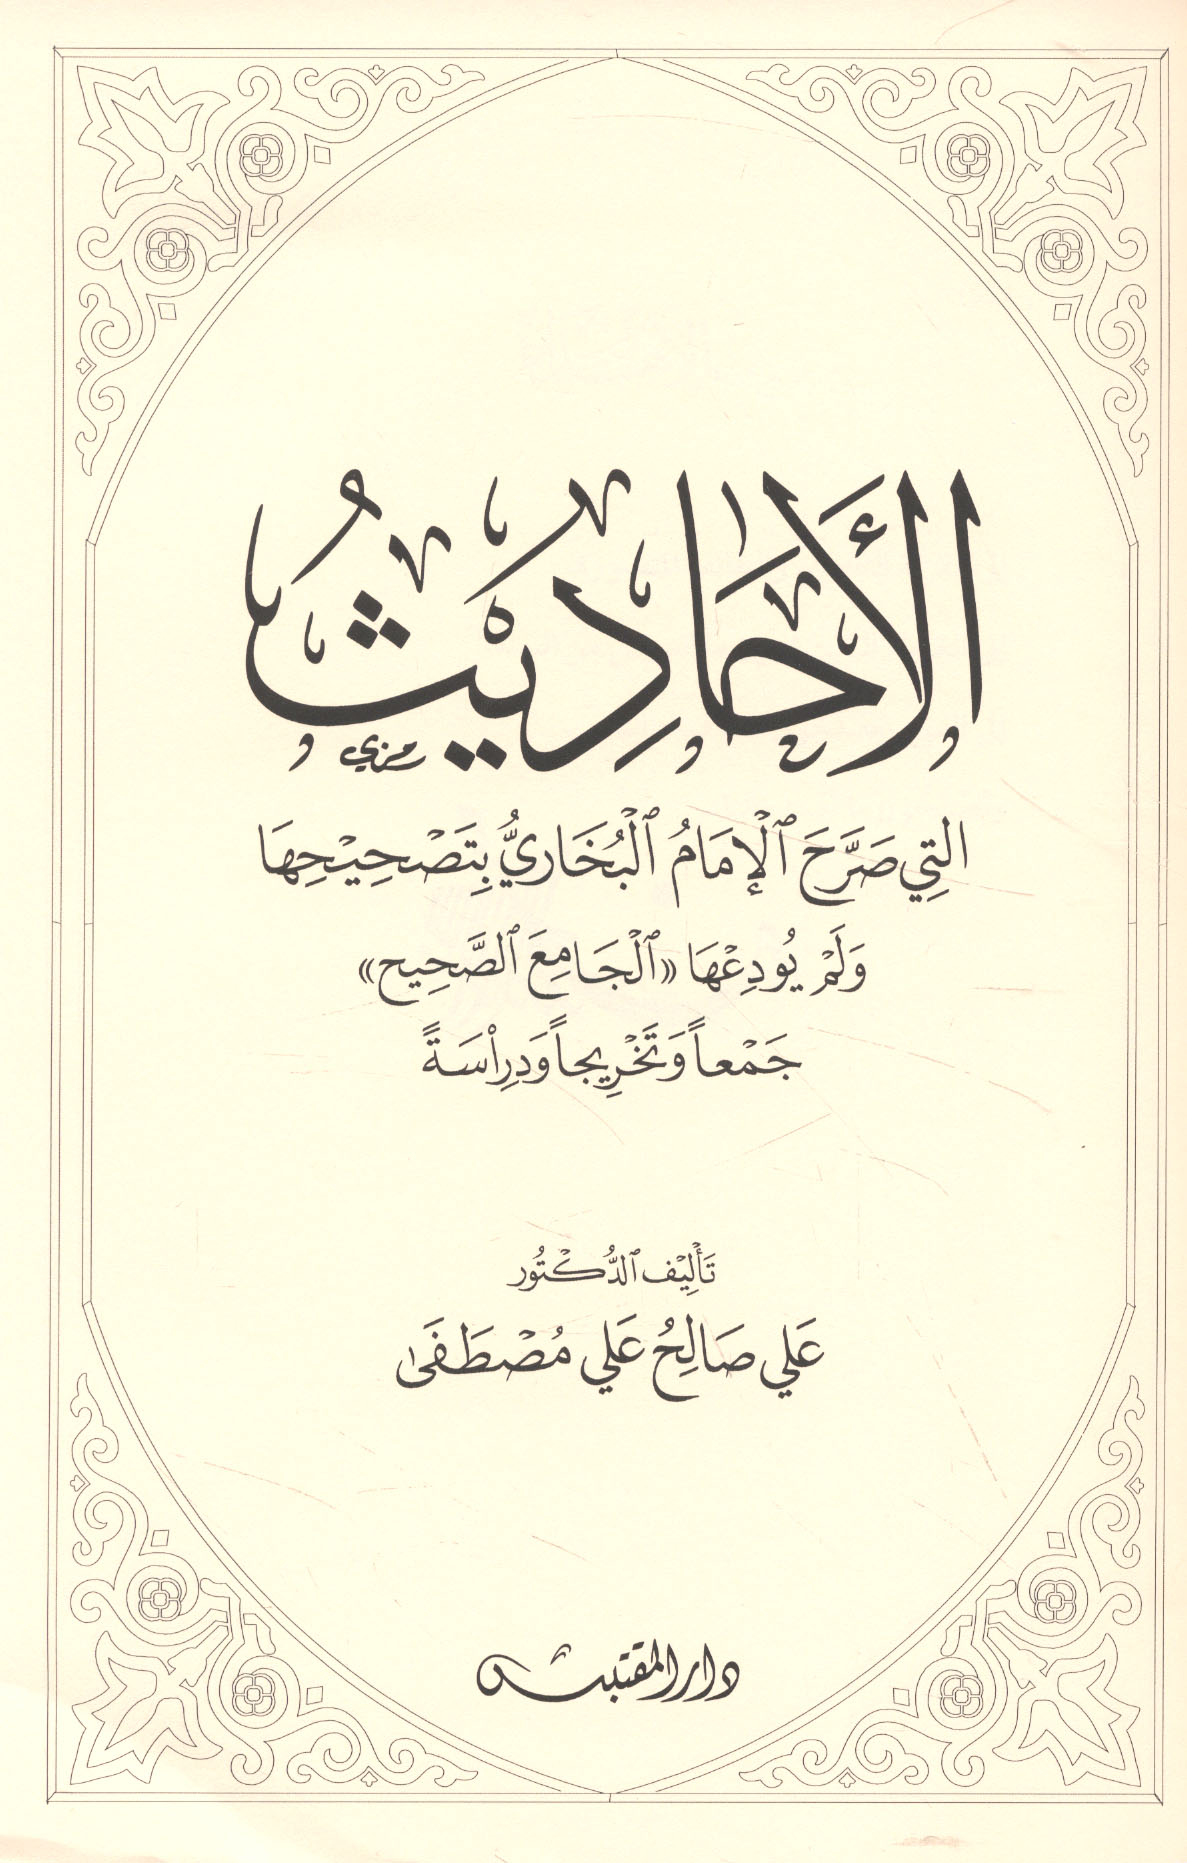 الأَحَادِيْثُ
التِي صَرَّحَ ٱلْإِمَامُ ٱلْبُخَارِيُّ بِتَصْحِيْحِهَا
وَلَمْ يُودِعْهَا «ٱلْجَامِعَ ٱلصَّحِيح»
جَمْعاً وَتَخْرِيجاً وَدِرِاْسَةً
تَأْلِيْف ٱلدُّكْتُور
عَلي صَالِحُ عَلي مُصْطَفَىٰ
دار المقتبس